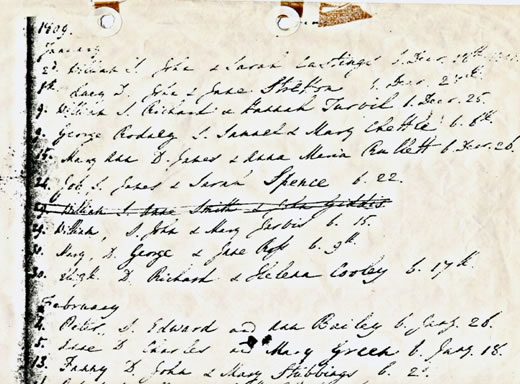 1809.
January
2d. William S. John & Sarah Eastings b. Decr. 28th
8th. Lucy D. John & Jane Stretton b. Decr. 24th
9. William S. Richard & Hannah Turvil b. Decr. 25.
9. George Rodney S. Samuel & Mary Chettle b. 6th.
15. Mary Ann D. James & Anna Maria Rullett b. Decr. 26.
24. Job. S. James & Sarah Spence b. 22.
William S. Jane Smith & John
29. William, S. John & Mary Jarvis b. 15.
30. Mary, D. George & Jane Ross b. 9th.
30. Elizth. D. Richard & Helena Cooley b. 17th.
February
2. Peter. S. Edward and Ann Bailey b. Jany. 26.
5. Jane D. Charles and Mary Green b. Jany. 18.
13. Fanny D. John & Mary Stubbings b. 2d.